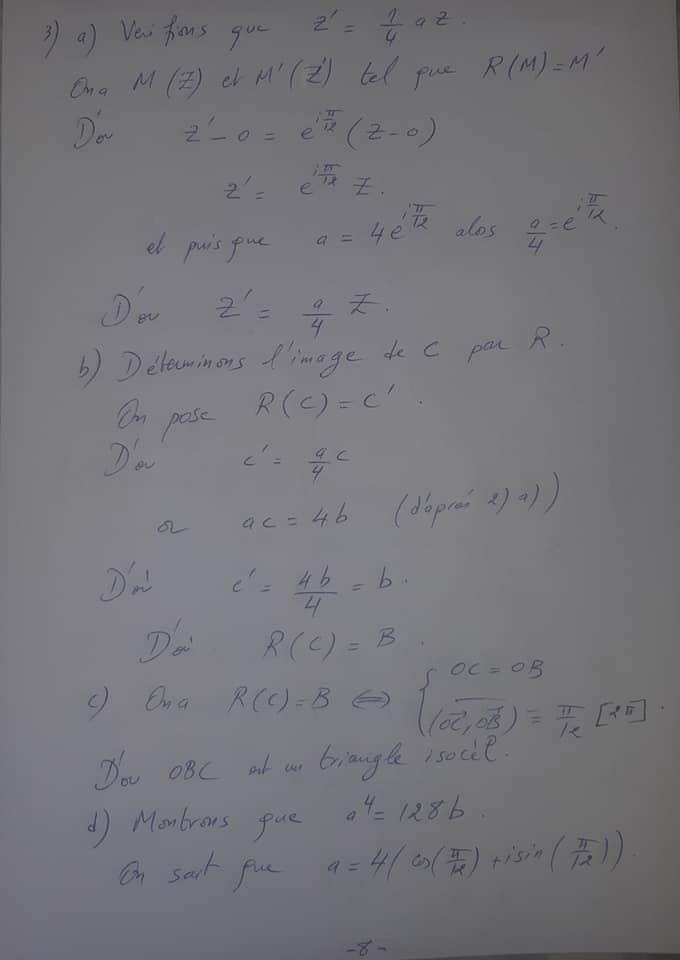 3) a) Verifions que z' = 1/4 a z.
On a M(z) et M'(z') tel que R(M)=M'
D'ou z'-o = e^{iπ/12} (z-o)
z' = e^{iπ/12} z.
et puis que a = 4e^{iπ/12} alos a/4 = e^{iπ/12}.
D'ou z' = a/4 z.
b) Déterminons l'image de C par R.
On pose R(C)=C'.
D'ou c' = a/4 c
or ac = 4b (d'après 2) a))
D'où c' = 4b/4 = b.
D'où R(C) = B.
c) On a R(C)=B ⇔ { OC = OB
(OC, OB) ≡ π/12 [2π].
D'ou OBC est un triangle isocèl.
d) Montrons que a^4 = 128b.
On sait que a = 4(cos(π/12) + isin(π/12)).
-8-